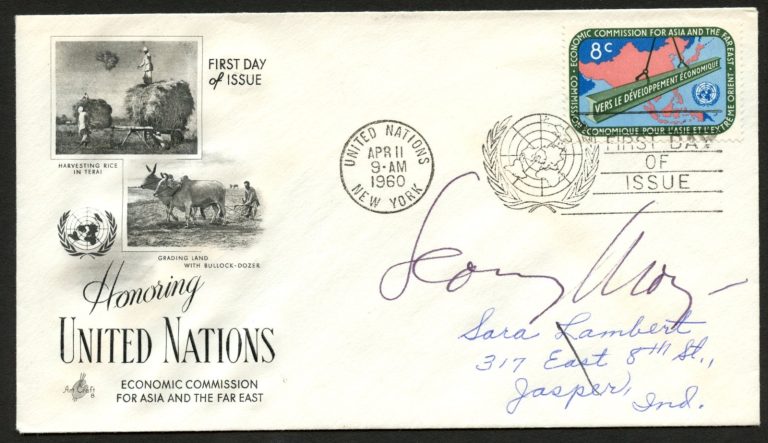 FIRST DAY
of ISSUE
HARVESTING RICE
IN TERAI
GRADING LAND
WITH BULLOCK-DOZER
Honoring
UNITED NATIONS
ECONOMIC COMMISSION
FOR ASIA AND THE FAR EAST
Art Craft
UNITED NATIONS
APR 11
9-AM
1960
NEW YORK
ECONOMIC COMMISSION FOR ASIA AND THE FAR EAST
8c
VERS LE DÉVELOPPEMENT ÉCONOMIQUE
COMMISSION ÉCONOMIQUE POUR L'ASIE ET L'EXTRÊME ORIENT
FIRST DAY
OF
ISSUE
Sara Lambert
317 East 8TH St.,
Jasper,
Ind.